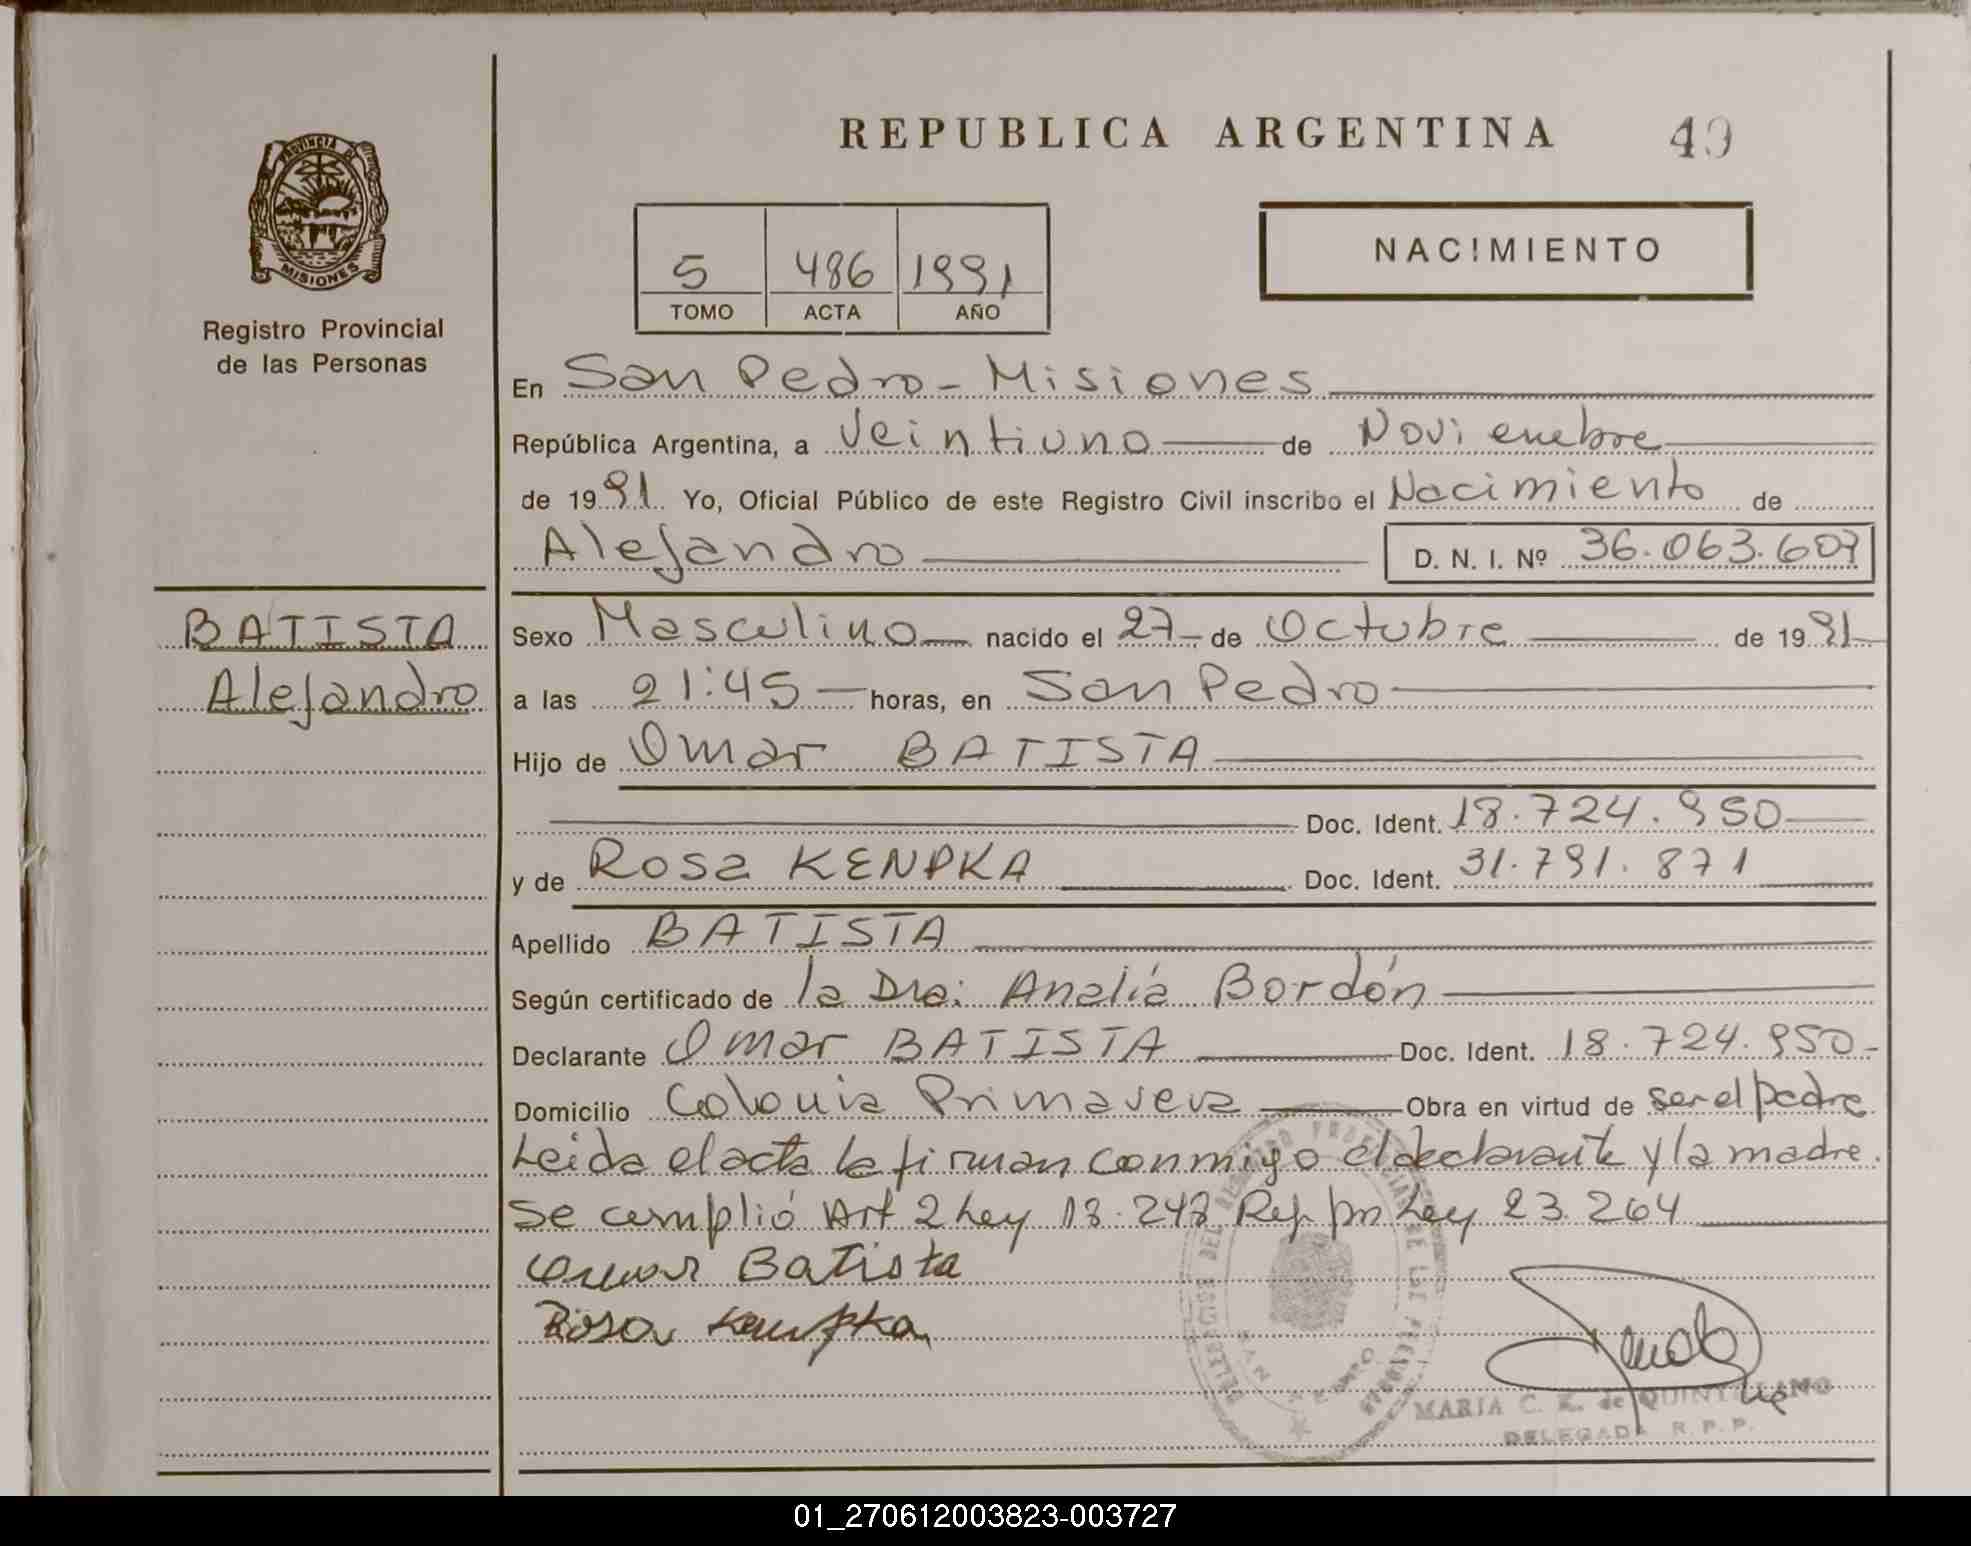 REPUBLICA ARGENTINA 49
PROVINCIA DE MISIONES
Registro Provincial
de las Personas
5 486 1991
TOMO ACTA AÑO
NACIMIENTO
En San Pedro - Misiones
República Argentina, a Veintiuno de Noviembre
de 1991 Yo, Oficial Público de este Registro Civil inscribo el Nacimiento de
Alejandro D. N. I. Nº 36.063.607
BATISTA
Alejandro
Sexo Masculino nacido el 27 de Octubre de 1991
a las 21:45 horas, en San Pedro
Hijo de Omar BATISTA
Doc. Ident. 18.724.950
y de Rosa KENPKA Doc. Ident. 31.791.871
Apellido BATISTA
Según certificado de la Dra: Analía Bordón
Declarante Omar BATISTA Doc. Ident. 18.724.950
Domicilio Colonia Primavera Obra en virtud de ser el padre
Leida el acta la firman conmigo el declarante y la madre.
Se cumplió Art 2 Ley 18.248 Rep. por Ley 23.264
Omar Batista
Rosa Kempka
DELEGACION DEL REGISTRO PROVINCIAL DE LAS PERSONAS
SAN PEDRO
MARIA C. K. de QUINTILIANO
DELEGADA R. P. P.
01_270612003823-003727